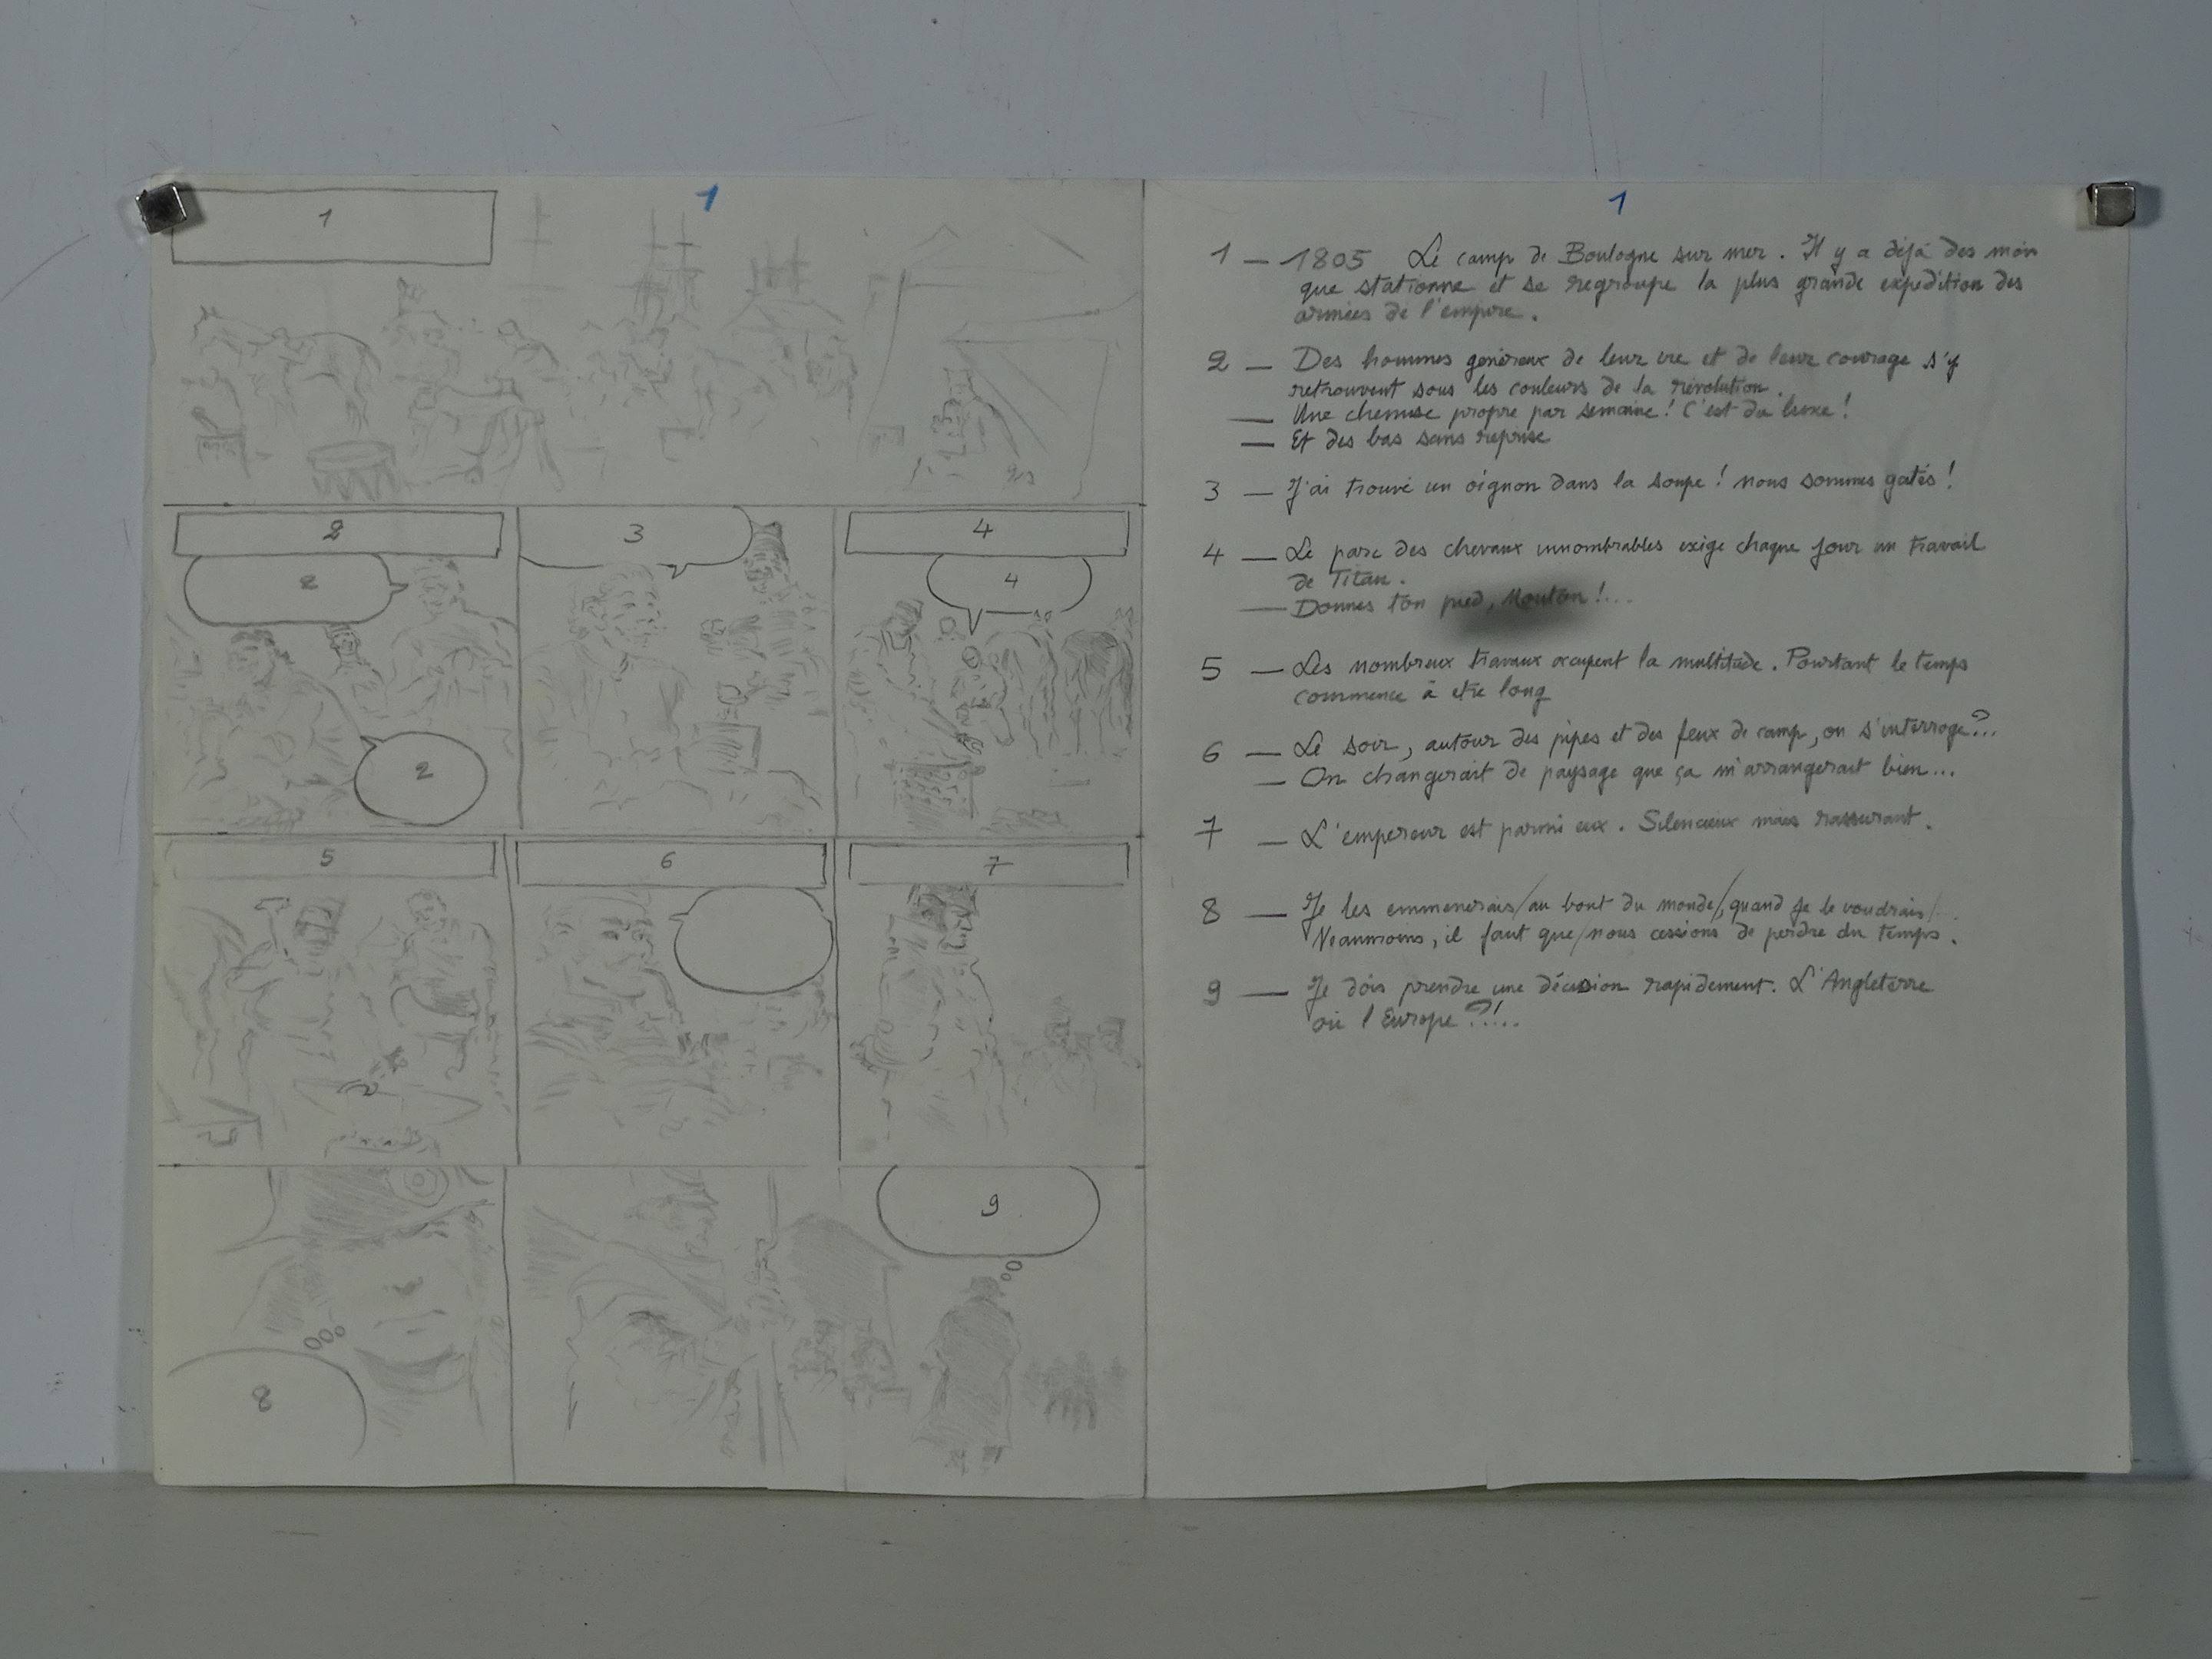 1
1
2
3
4
2
4
2
5
6
7
9
8
1
1 — 1805 Le camp de Boulogne sur mer. Il y a déjà des mois
que stationne et se regroupe la plus grande expédition des
armées de l'empire.
2 — Des hommes généreux de leur vie et de leur courage s'y
retrouvent sous les couleurs de la révolution.
— Une chemise propre par semaine! C'est du luxe!
— Et des bas sans reprise
3 — J'ai trouvé un oignon dans la soupe! nous sommes gatés!
4 — Le parc des chevaux innombrables exige chaque jour un travail
de Titan.
— Donnes ton pied, Mouton!...
5 — Les nombreux travaux occupent la multitude. Pourtant le temps
commence à etre long
6 — Le soir, autour des pipes et des feux de camp, on s'interroge?...
— On changerait de paysage que ça m'arrangerait bien...
7 — L'empereur est parmi eux. Silencieux mais rassurant.
8 — Je les emmenerais/au bout du monde/, quand je le voudrais/
Neanmoins, il faut que/nous cessions de perdre du temps.
9 — Je dois prendre une décision rapidement. L'Angleterre
où l'Europe?!...